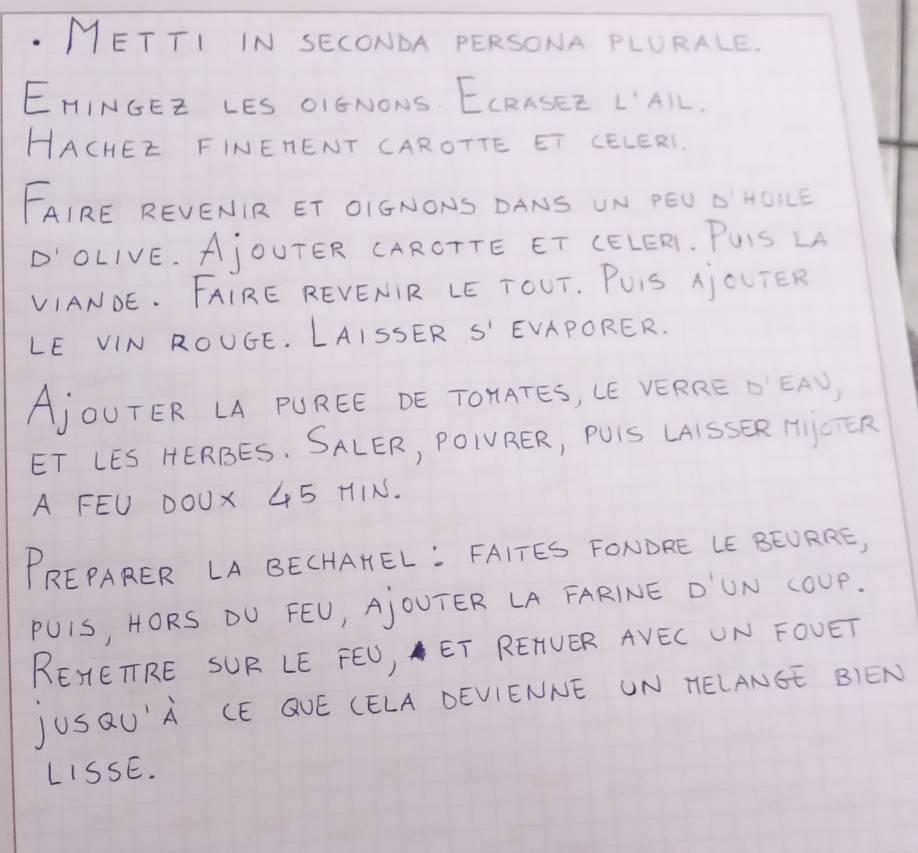 • METTI IN SECONDA PERSONA PLURALE.
EMINGEZ LES OIGNONS. ECRASEZ L'AIL.
HACHEZ FINEMENT CAROTTE ET CELERI.
FAIRE REVENIR ET OIGNONS DANS UN PEU D'HUILE
D'OLIVE. AjOUTER CAROTTE ET CELERI. PUIS LA
VIANDE. FAIRE REVENIR LE TOUT. PUIS AjOUTER
LE VIN ROUGE. LAISSER S'EVAPORER.
AjOUTER LA PUREE DE TOMATES, LE VERRE D'EAU,
ET LES HERBES. SALER, POIVRER, PUIS LAISSER MIjOTER
A FEU DOUX 45 MIN.
PREPARER LA BECHAMEL: FAITES FONDRE LE BEURRE,
PUIS, HORS DU FEU, AjOUTER LA FARINE D'UN COUP.
REMETTRE SUR LE FEU, ET REMUER AVEC UN FOUET
jUSQU'À CE QUE CELA DEVIENNE UN MELANGE BIEN
LISSE.